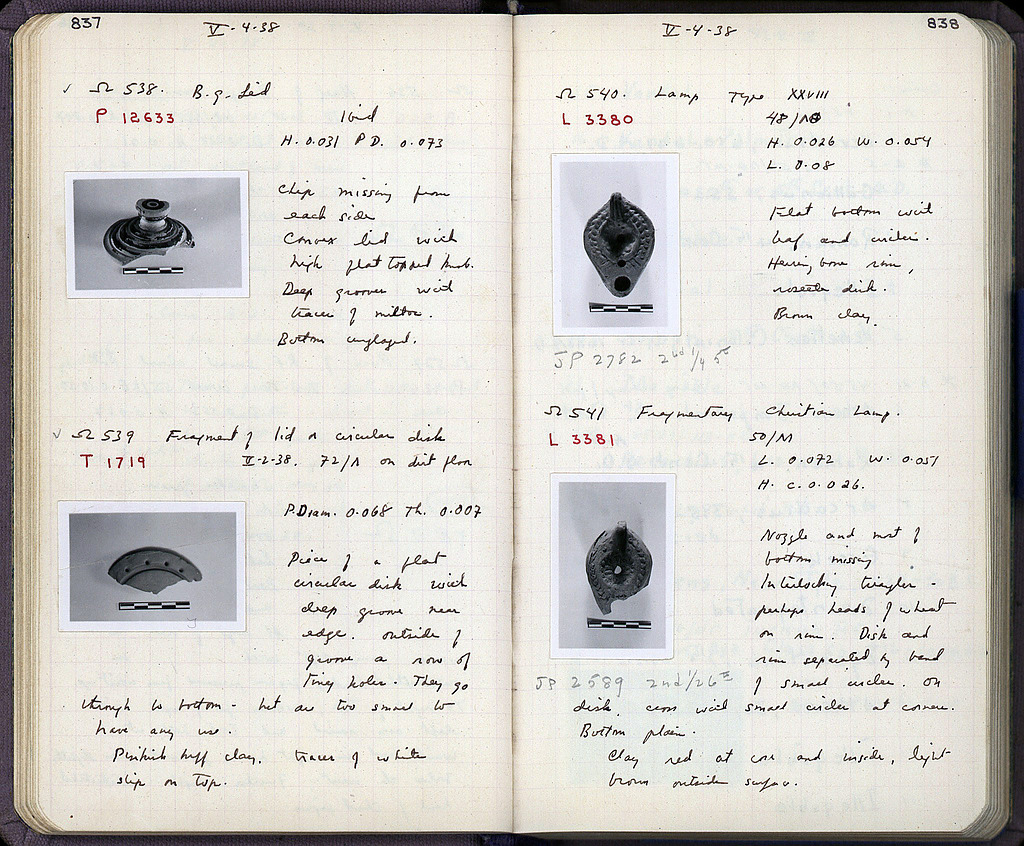 837
V-4-38
✓ Ω 538. B.g. Lid
P 12633
Ibid
H. 0.031 P.D. 0.073
Chip missing from
each side
Convex lid with
high flat topped knob.
Deep grooves with
traces of miltos.
Bottom unglazed.
✓ Ω 539 Fragment of lid or circular disk
T 1719
V-2-38. 72/Λ on dirt floor
P.Diam. 0.068 Th. 0.007
Piece of a flat
circular disk with
deep groove near
edge. Outside of
groove a row of
tiny holes. They go
through to bottom - but are too small to
have any use.
Pinkish buff clay. traces of white
slip on top.
838
V-4-38
Ω 540. Lamp Type XXVIII
L 3380
48/
H. 0.026 W. 0.054
L. 0.08
Flat bottom with
leaf and circles.
Herringbone rim,
rosette disk.
Brown clay.
JP 2782 2nd 1/4 5th
Ω 541 Fragmentary Christian Lamp.
L 3381
50/
L. 0.072 W. 0.051
H. c. 0.026.
Nozzle and most of
bottom missing
Interlocking triangles -
perhaps heads of wheat
on rim. Disk and
rim separated by band
of small circles. On
JP 2589 2nd
disk. cross with small circles at corners.
Bottom plain.
Clay red at core and inside, light
brown outside surface.